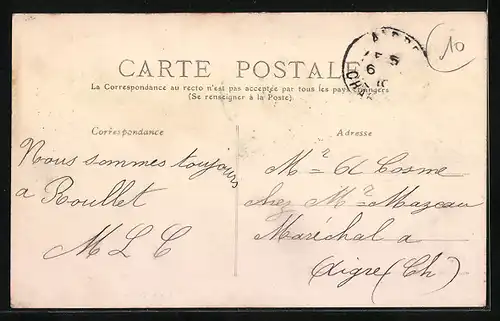 10
CARTE POSTALE
La Correspondance au recto n'est pas acceptée par tous les pays étrangers
(Se renseigner à la Poste)
Correspondance
Nous sommes toujours
a Roullet
M L C
Adresse
Mr A Cosme
chez Mr Mazeau
Maréchal a
Aigre (Ch)